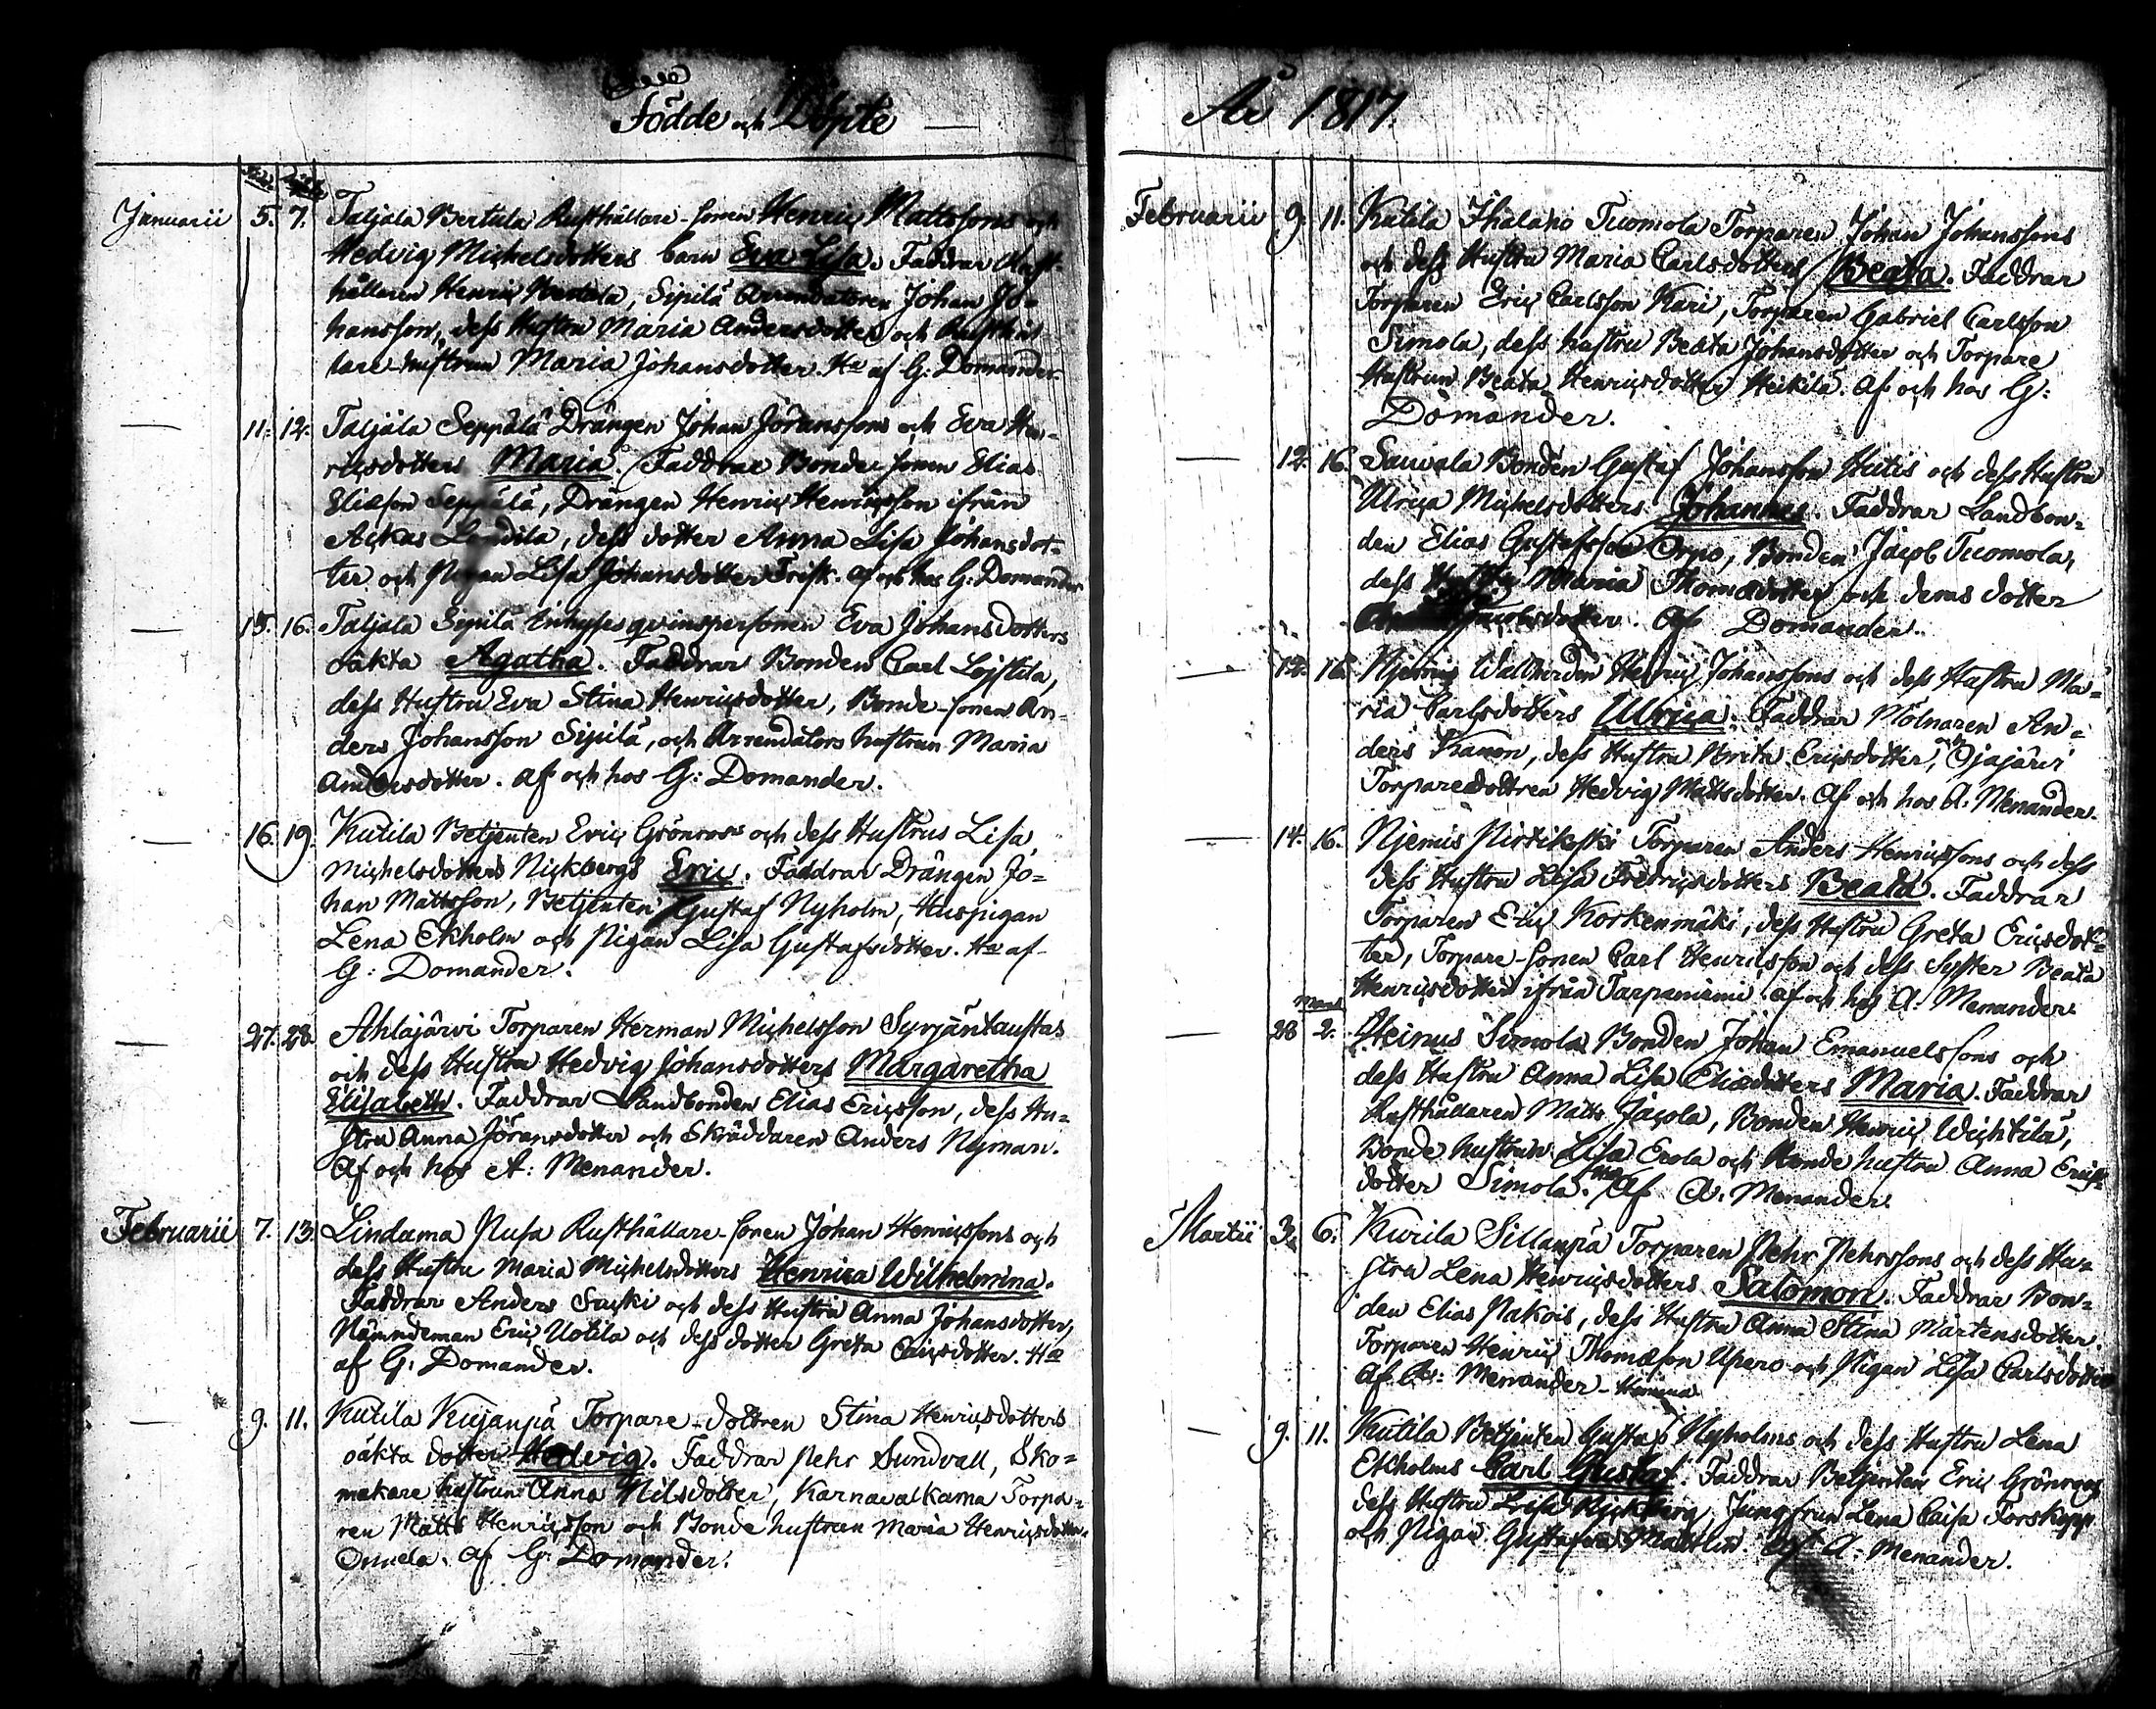 Födde och Döpte
År 1817.
Januarii 5. 7. Taljala Bertula Rusthållare-sonen Henric Mattssons och
Hedvig Michelsdotters barn Eva Lisa. Faddrar Rust-
hållaren Henric Bertula, Sipilä Arrendatoren Johan Jo-
hansson, dess Hustru Maria Andersdotter och Rusthål
lare-hustrun Maria Johansdotter. Ha af G: Domander.
— 11. 12. Taljala Seppälä Drängen Johan Jöranssons och Eva Hen-
ricsdotters Maria. Faddrar Bonde sonen Elias
Eliæson Seppälä, Drängen Henric Henricsson ifrån
Ackas, dess dotter Anna Lisa Johansdot-
ter och Pigan Lisa Johansdotter Frisk. af och hos G: Domander
— 15. 16. Taljala Sipilä Inhyses qvinspersonen Eva Johansdotters
oäkta Agatha. Faddrar Bonden Carl Lojstila,
dess Hustru Eva Stina Henricsdotter, Bonde-sonen An-
ders Johansson Sipilä, och Arrendators hustrun Maria
Andersdotter. af och hos G: Domander.
— 16. 19. Kutila Betjenten Eric Grönroos och dess Hustrus Lisa
Michelsdotters Nickbergs Eric. Faddrar Drängen Jo-
han Mattsson, Betjenten Gustaf Nyholm, Huspigan
Lena Ekholm och Pigan Lisa Gustafsdotter. Ha af
G: Domander.
— 27. 28. Ahlajärvi Torparen Herman Michelsson Syvjäntaustas
och dess Hustru Hedvig Johansdotters Margaretha
Elisabeth. Faddrar Landbonden Elias Ericsson, dess Hu-
stru Anna Jöransdotter och Skräddaren Anders Nyman.
Af och hos A: Menander.
Februarii 7. 13. Lindama Pusa Rusthållare-sonen Johan Henricssons och
dess Hustru Maria Michelsdotters Henrica Wilhelmina.
Faddrar Anders och dess Hustru Anna Johansdotter,
Nämndeman Eric Uotila och dess dotter Greta Ericsdotter. Ha
af G: Domander.
— 9. 11. Kutila Kujanpä Torpare-dottren Stina Henricsdotters
oäkta dotter Hedvig. Faddrar Pehr Sundvall, Sko-
makare hustrun Anna Nilsdotter, Karnavalkama Torpa-
ren Matts Henricsson och Bonde hustrun Maria Henricsdotter
Onnela. af G: Domander.
Februarii 9. 11. Kutila Ihalaho Tuomola Torparen Johan Johanssons
och dess Hustru Maria Carlsdotters Beata. Faddrar
Torparen Eric Carlsson Kari, Torparen Gabriel Carlsson
Simola, dess hustru Beata Johansdotter och Torpare
Hustrun Beata Henricsdotter Heikilä. af och hos G:
Domander.
— 12. 16. Sauvala Bonden Gustaf Johansson Hutis och dess Hustru
Ulrica Michelsdotters Johannes. Faddrar Landbon-
den Elias Gustafsson Orpo, Bonden Jacob Tuomola,
dess Maria Thomædotter och deras dotter
Jacobsdotter. Af Domander.
— 12. 16. Njemis Henric Johanssons och dess Hustru Ma-
ria Carlsdotters Ulrica. Faddrar Mölnaren An-
ders Kanon, dess Hustru Brita Ericsdotter, Ojajärvi
Torparedottren Hedvig Mattsdotter. Af och hos A: Menander.
— 14. 16. Njemis Pirtikoski Torparen Anders Henricssons och dess
dess Hustru Lisa Fredricsdotters Beata. Faddrar
Torparen Eric Korkenmäki, dess Hustru Greta Ericsdot-
ter, Torpare-sonen Carl Henricsson och dess Syster Beata
Henricsdotter ifrån Tarpaniemi af och hos A: Menander.
Mart.
— 28 2. Heinus Simola Bonden Johan Emanuelssons och
dess Hustru Anna Lisa Eliædotters Maria. Faddrar
Rusthållaren Matts Jacola, Bonden Henric Wichtilä,
Bonde hustrun Lisa Erola och Bonde hustru Anna Erics-
dotter Simola. Ha Af A. Menander.
Martii 3. 6. Kurila Sillanpä Torparen Pehr Pehrssons och dess Hu-
stru Lena Henricsdotters Salomon. Faddrar Bon-
den Elias Pakois, dess Hustru Anna Stina Mårtensdotter
Torparen Henric Thomæson Upero och Pigan Lisa Carlsdotter
Af A: Menander - Hemma
— 9. 11. Kutila Betjenten Gustaf Nyholms och dess Hustru Lena
Ekholms Carl Gustaf. Faddrar Betjenten Eric Grönroos
dess Hustru Lisa Nickberg, Jungfrun Lena Caisa Forskopp
och Pigan Gustafva Mattlin. A: Menander.